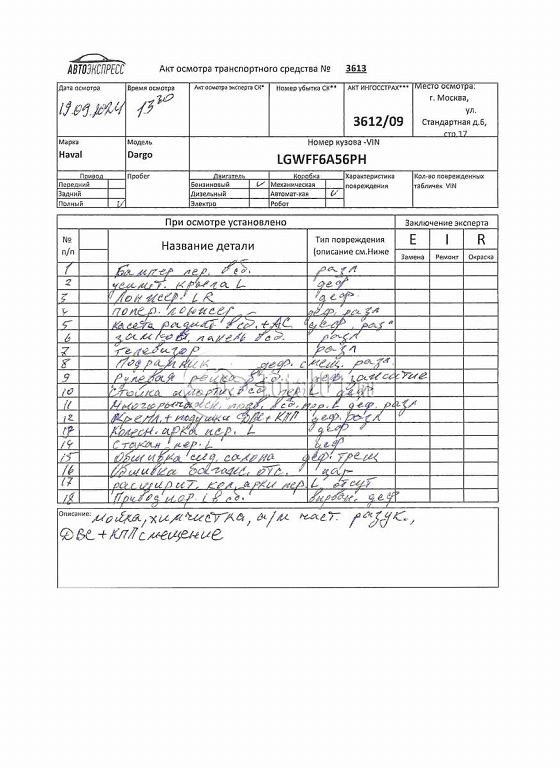 АВТОЭКСПРЕСС
Акт осмотра транспортного средства № 3613
Дата осмотра Время осмотра Акт осмотра эксперта СК* Номер убытка СК** АКТ ИНГОССТРАХ*** Место осмотра:
19.09.2024 13 30 3612/09 г. Москва,
ул.
Стандартная д.6,
стр.17
Марка Модель Номер кузова -VIN
Haval Dargo LGWFF6A56PH
Привод Пробег Двигатель Коробка Характеристика повреждения Кол-во поврежденных табличек VIN
Передний Бензиновый V Механическая
Задний Дизельный Автомат-кая V
Полный V Электро Робот
При осмотре установлено Заключение эксперта
№ п/п Название детали Тип повреждения (описание см.Ниже E I R
Замена Ремонт Окраска
1 Бампер пер. в сб. разл
2 усилит. крыла L деф
3 Лонжер. LR деф.
4 попер. лонжер деф. разл
5 касета радиат в сб. + АС деф, раз
6 замков. панель в сб. разл
7 телевизор разл
8 Подрамник деф. смещ. разл
9 рулевая рейка в сб. деф зажатие
10 Стойка аморт. в сб. пер. L деф
11 Многорычажн. подв. в сб. пер. L деф. разл
12 Крепл. + подушки ДВС + КПП деф. разл
13 Колесн. арка пер. L деф
14 Стакан пер. L деф
15 Обшивка сид. салона деф. трещ
16 Обшивка багажн. отс. цар
17 расширит. кол. арки пер. L отсут
18 Привод пер. L в сб. вырван. деф
Описание: мойка, химчистка, а/м част. разук.,
ДВС + КПП смещение